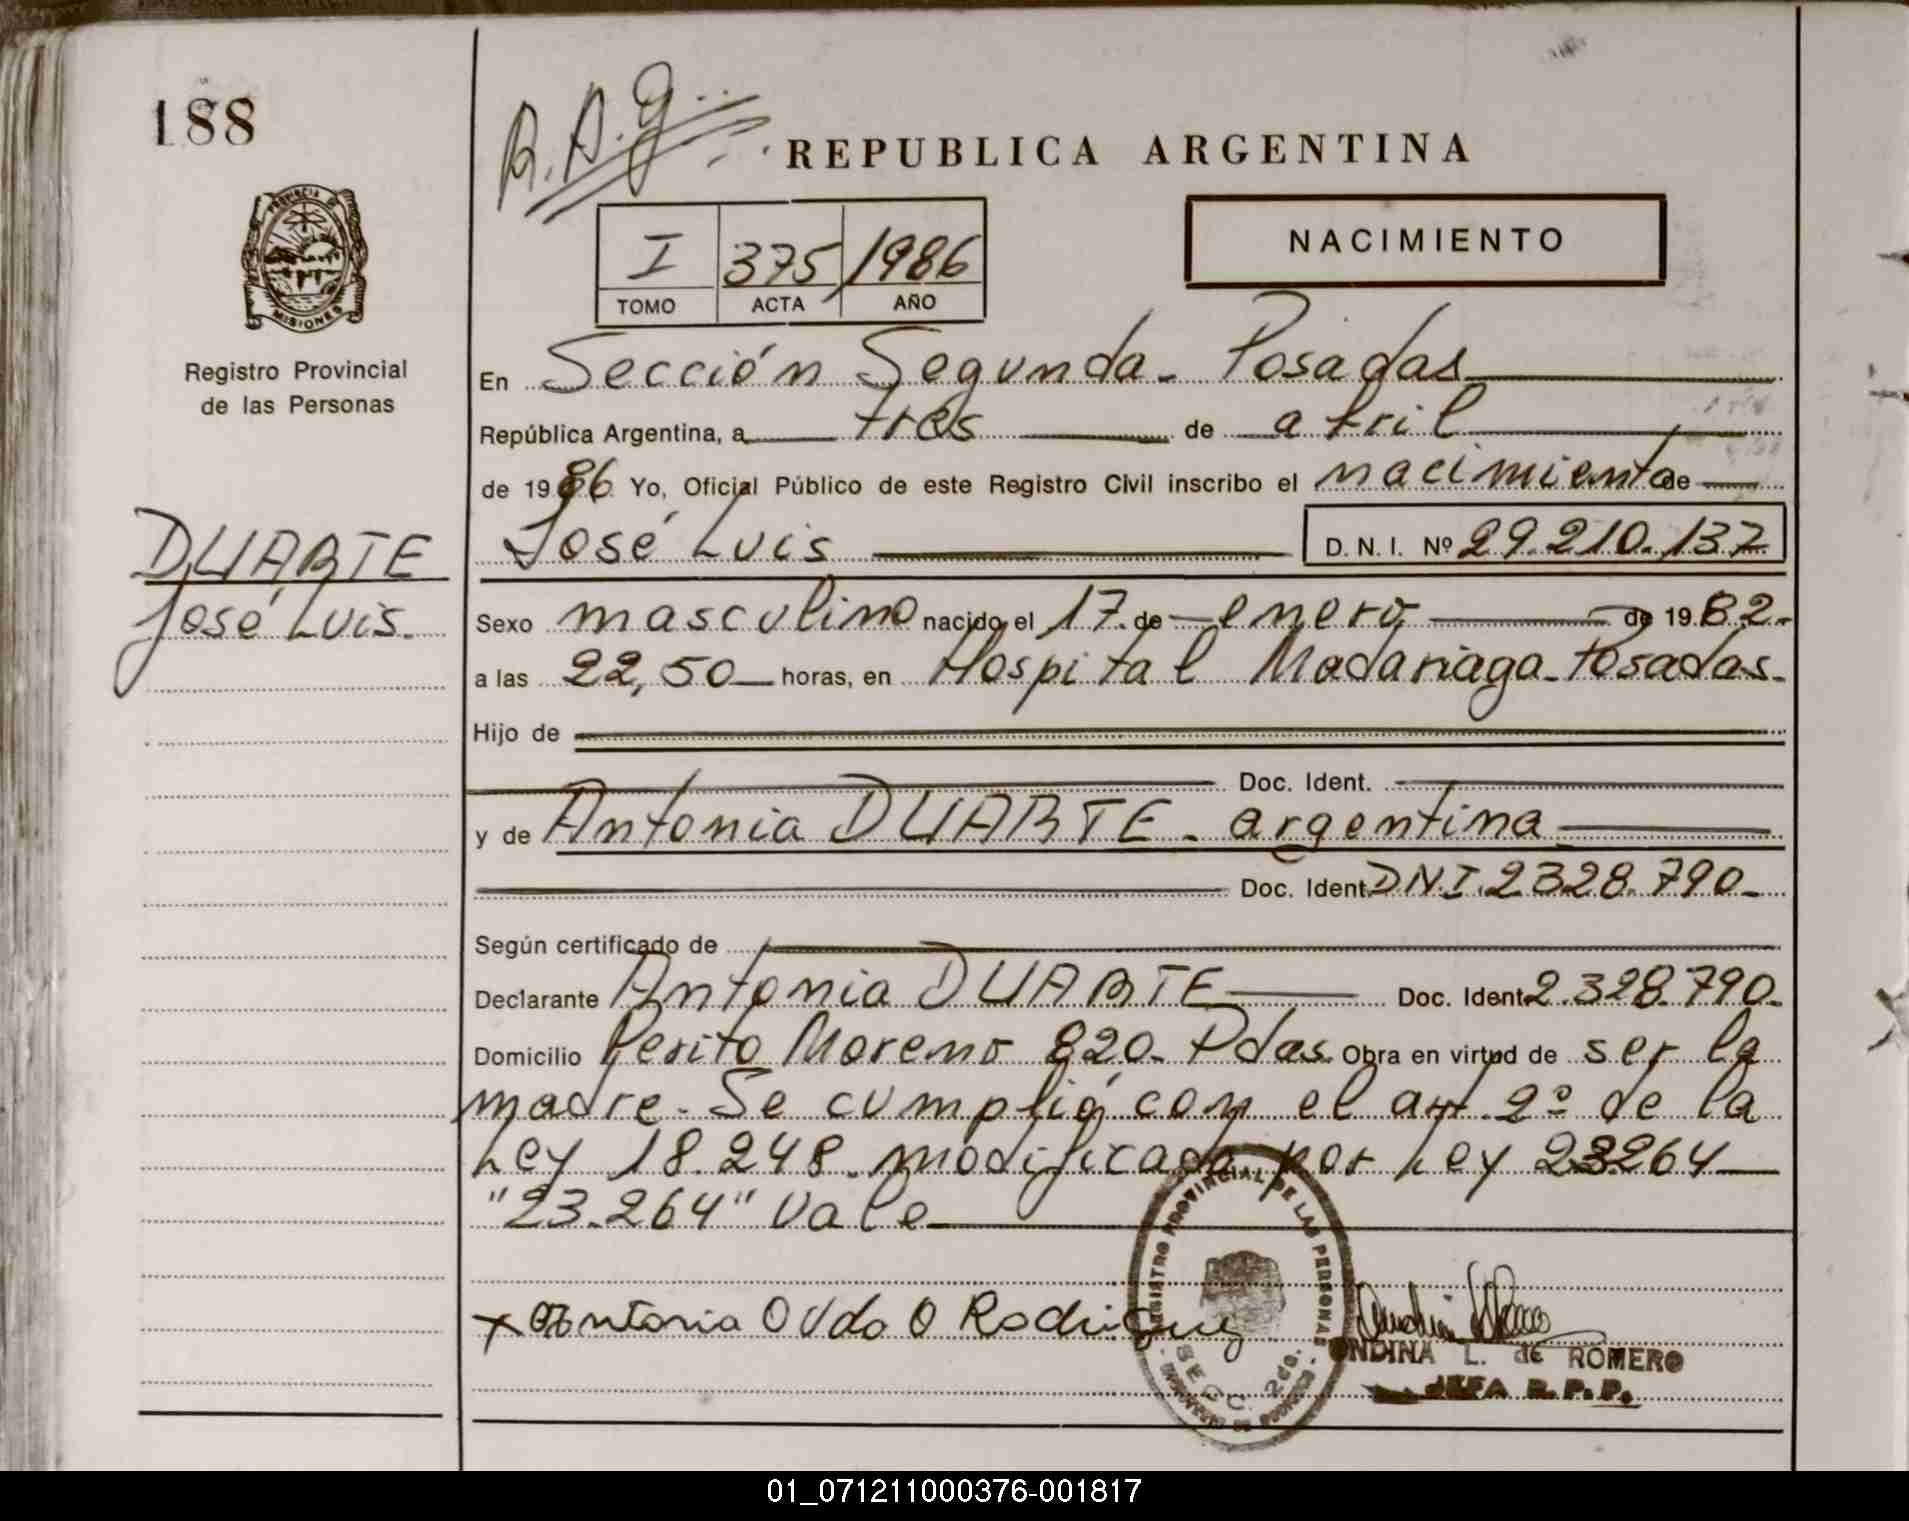 188
R.A.g.
REPUBLICA ARGENTINA
PROVINCIA DE
MISIONES
I 375 1986
TOMO ACTA AÑO
NACIMIENTO
Registro Provincial
de las Personas
En Sección Segunda - Posadas
República Argentina, a tres de abril
de 1986 Yo, Oficial Público de este Registro Civil inscribo el nacimiento de
José Luis D. N. I. Nº 29.210.137
DUARTE
José Luis.
Sexo masculino nacido el 17 de enero de 1982.
a las 22,50 horas, en Hospital Madariaga - Posadas.
Hijo de
Doc. Ident.
y de Antonia DUARTE - argentina
Doc. Ident. DN.I. 2328.790
Según certificado de
Declarante Antonia DUARTE Doc. Ident. 2.328.790.
Domicilio Perito Moreno 820. Pdas. Obra en virtud de ser la
madre - Se cumplió con el art. 2º de la
Ley 18.248 modificada por Ley 23264
"23.264" Vale
REGISTRO PROVINCIAL DE LAS PERSONAS
SECC. 2da.
x Antonia
ONDINA L. de ROMERO
JEFA R.P.P.
01_071211000376-001817